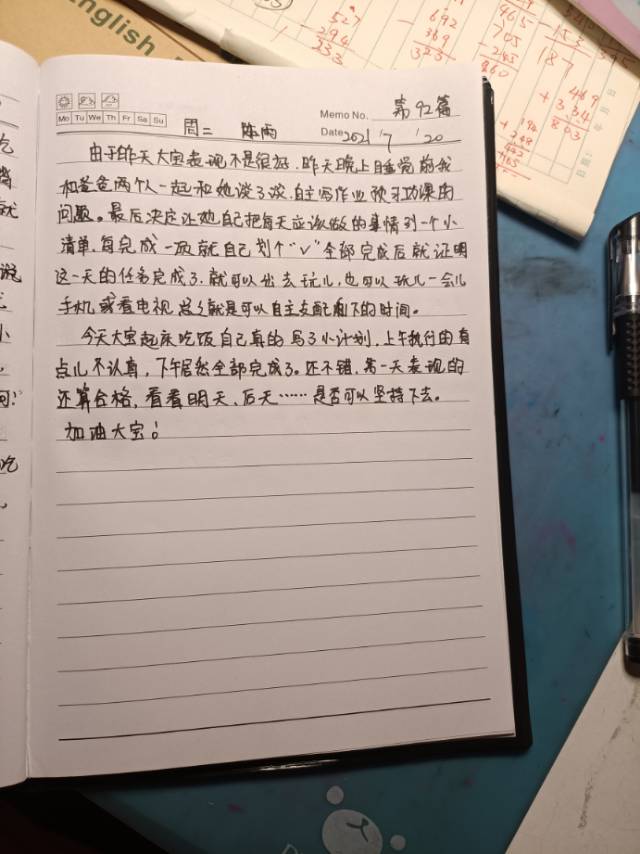 English
Memo No. 第92篇
Mo Tu We Th Fr Sa Su
周二 阵雨
Date 2021 / 7 / 20
由于昨天大宝表现不是很好，昨天晚上睡觉前我
和爸爸两个人一起和她谈了谈，自主写作业预习功课的
问题。最后决定让她自己把每天应该做的事情列一个小
清单，每完成一项就自己划个“√”全部完成后就证明
这一天的任务完成了，就可以出去玩儿，也可以玩儿一会儿
手机或看电视，总之就是可以自主支配剩下的时间。
今天大宝起床吃饭自己真的写了小计划，上午执行的有
点儿不认真，下午居然全部完成了。还不错，第一天表现的
还算合格，看看明天、后天……是否可以坚持下去。
加油大宝！
527
- 294
233
692
- 369
323
465
705
- 245
460
187
469
+ 334
803